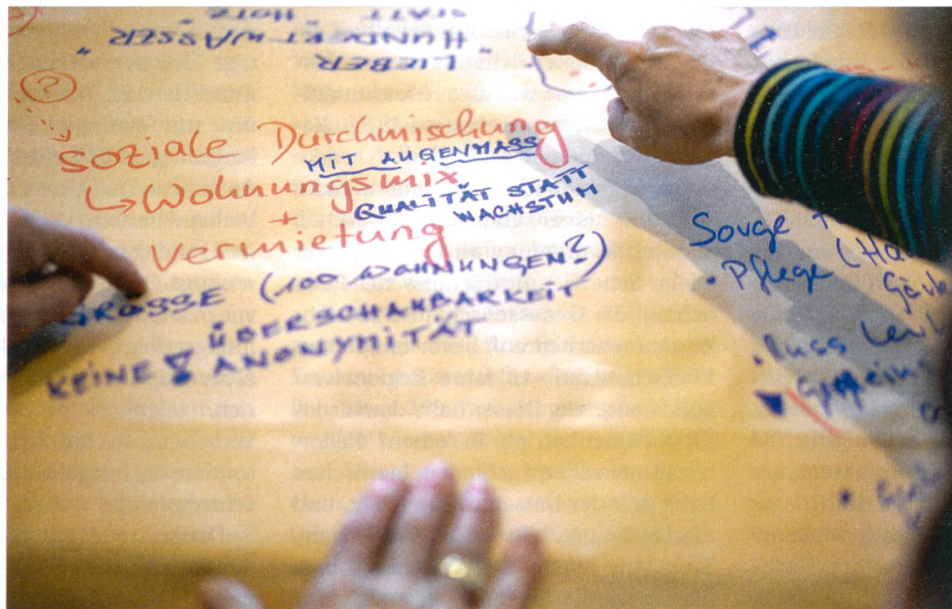 "LIEBER
HUNDERTWASSER"
STATT "HOTZ"
?
Soziale Durchmischung
MIT AUGENMASS
↳ Wohnungsmix
QUALITÄT STATT
WACHSTUM
+
Vermietung
GRÖSSE (100 WOHNUNGEN?)
ÜBERSCHAUBARKEIT
KEINE ANONYMITÄT
Sorge
• Pflege